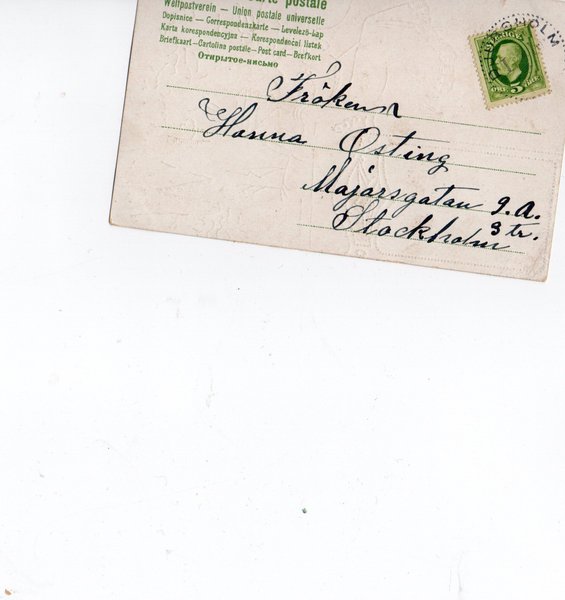 Carte postale
Weltpostverein — Union postale universelle
Dopisnice — Correspondenzkarte — Levelező-Lap
Karta korespondencyjna — Korespondenční lístek
Briefkaart — Cartolina postale — Post card — Brefkort
Открытое-письмо
SVERIGE
5 ÖRE 5 ÖRE
HOLM
Fröken
Hanna Osting
Majorsgatan 9.A.
3 tr.
Stockholm